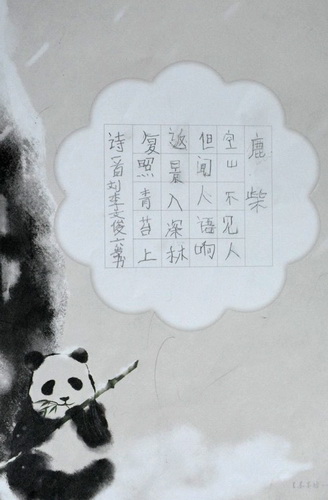 鹿柴
空山不见人
但闻人语响
返景入深林
复照青苔上
诗一首 刘李文俊